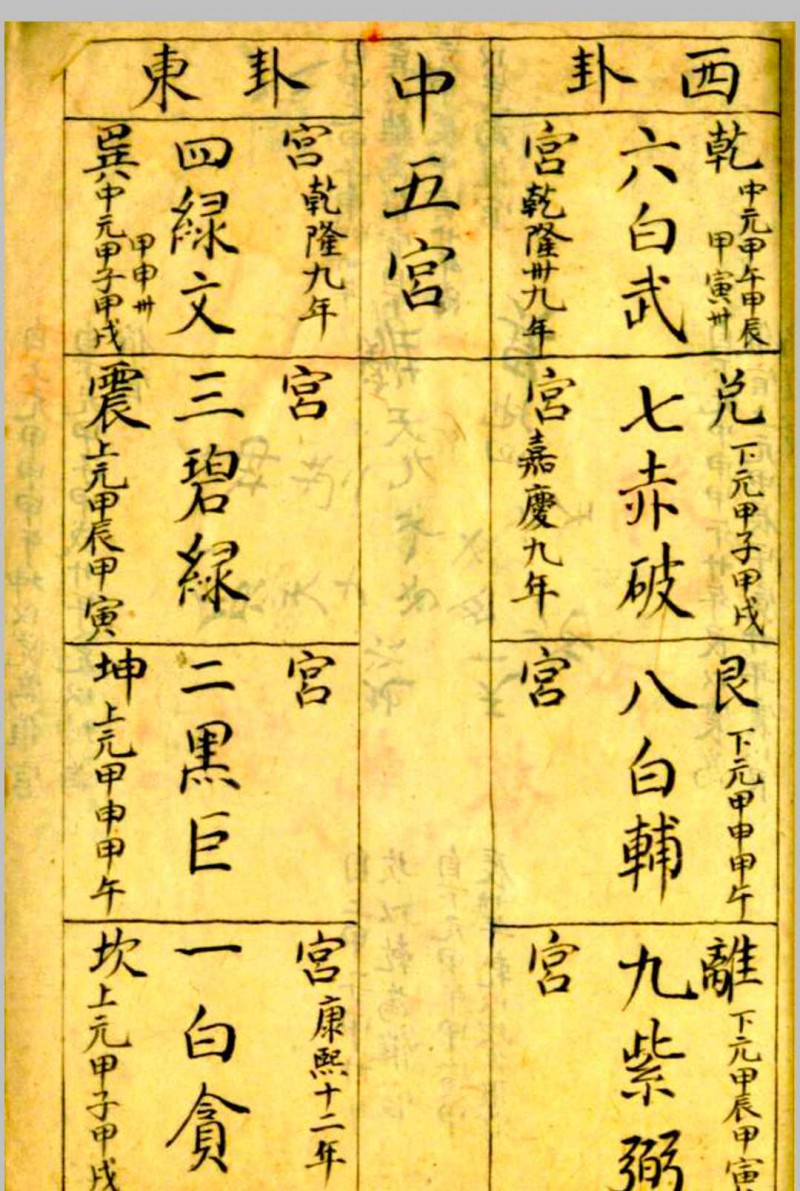 西卦
乾 中元甲午甲辰
甲寅卅
六白武
宮 乾隆卅九年
兌 下元甲子甲戌
七赤破
宮 嘉慶九年
艮 下元甲申甲午
八白輔
宮
離 下元甲辰甲寅
九紫弼
宮
中五宮
卦東
宮 乾隆九年
四緑文
巽 中元甲子甲戌
甲申卅
宮
三碧緑
震 上元甲辰甲寅
宮
二黑巨
坤 上元甲申甲午
宮 康熙十二年
一白貪
坎 上元甲子甲戌